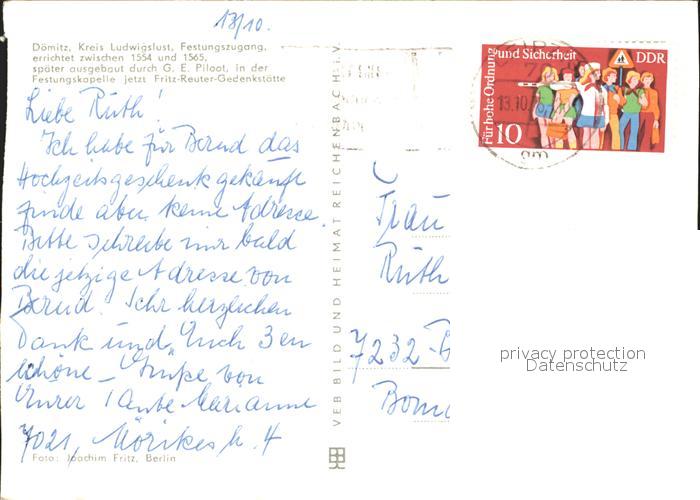 13/10.
Dömitz, Kreis Ludwigslust, Festungszugang,
errichtet zwischen 1554 und 1565,
später ausgebaut durch G. E. Piloot, in der
Festungskapelle jetzt Fritz-Reuter-Gedenkstätte
Liebe Ruth!
Ich habe für Bernd das
Hochzeitsgeschenk gekauft
finde aber keine Adresse.
Bitte schreibe mir bald
die jetzige Adresse von
Bernd. Sehr herzlichen
Dank und Euch 3en
schöne – Grüße von
Eurer Tante Marianne
7021, Mörikestr. 4
Foto: Joachim Fritz, Berlin
VEB BILD UND HEIMAT REICHENBACH i. V.
Für hohe Ordnung und Sicherheit
DDR
10
13.10
Frau
Ruth
7232-B
Born
privacy protection
Datenschutz